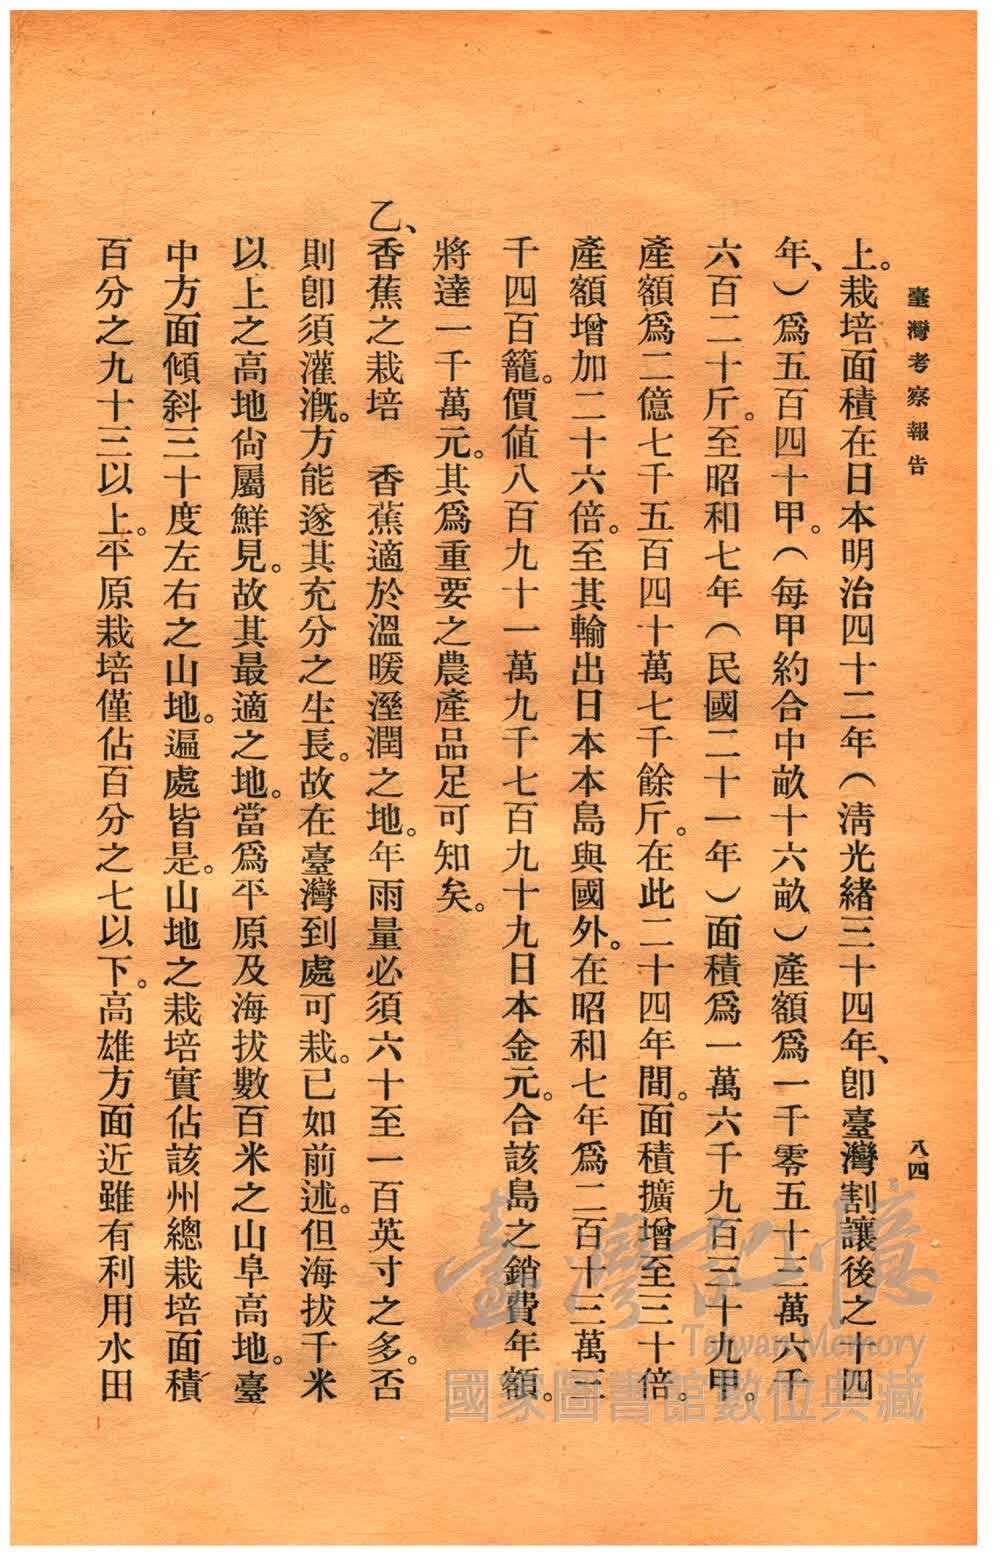 臺灣考察報告
八四
上。栽培面積在日本明治四十二年（淸光緖三十四年、卽臺灣割讓後之十四
年、）爲五百四十甲。（每甲約合中畝十六畝）產額爲一千零五十三萬六千
六百二十斤。至昭和七年（民國二十一年）面積爲一萬六千九百三十九甲。
產額爲二億七千五百四十萬七千餘斤。在此二十四年間。面積擴增至三十倍。
產額增加二十六倍。至其輸出日本本島與國外。在昭和七年爲二百十三萬三
千四百籠。價値八百九十一萬九千七百九十九日本金元。合該島之銷費年額。
將達一千萬元。其爲重要之農產品足可知矣。
乙、香蕉之栽培　香蕉適於溫暖溼潤之地。年雨量必須六十至一百英寸之多。否
則卽須灌漑。方能遂其充分之生長。故在臺灣到處可栽。已如前述。但海拔千米
以上之高地尙屬鮮見。故其最適之地。當爲平原及海拔數百米之山阜高地。臺
中方面傾斜三十度左右之山地。遍處皆是。山地之栽培實佔該州總栽培面積
百分之九十三以上。平原栽培僅佔百分之七以下。高雄方面近雖有利用水田
臺灣記憶
Taiwan Memory
國家圖書館數位典藏